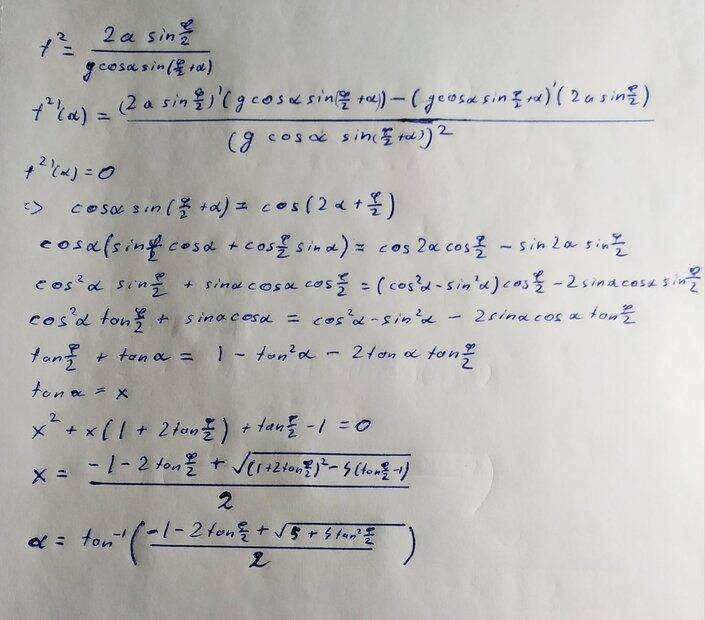 t² = 2a sin φ/2 / g cosα sin(φ/2 + α)
t²'(α) = (2a sin φ/2)'(g cosα sin(φ/2 + α)) − (g cosα sin φ/2 + α)'(2a sin φ/2) / (g cosα sin(φ/2 + α))²
t²'(α) = 0
=> cosα sin(φ/2 + α) = cos(2α + φ/2)
cosα(sin φ/2 cosα + cos φ/2 sinα) = cos2α cos φ/2 − sin2α sin φ/2
cos²α sin φ/2 + sinα cosα cos φ/2 = (cos²α − sin²α) cos φ/2 − 2 sinα cosα sin φ/2
cos²α tan φ/2 + sinα cosα = cos²α − sin²α − 2 sinα cosα tan φ/2
tan φ/2 + tanα = 1 − tan²α − 2 tanα tan φ/2
tanα = x
x² + x(1 + 2tan φ/2) + tan φ/2 − 1 = 0
x = −1 − 2 tan φ/2 + √((1+2tan φ/2)² − 4(tan φ/2 − 1)) / 2
α = tan⁻¹(−1 − 2tan φ/2 + √(5 + 4tan² φ/2) / 2)